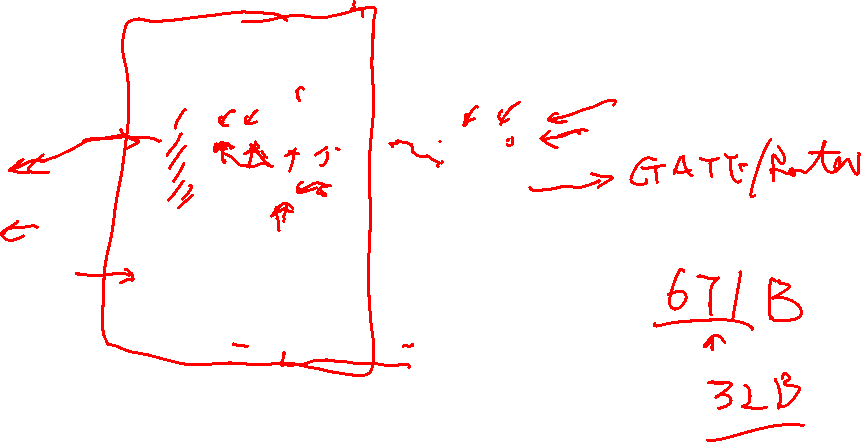 GATE/Router
671B
32B